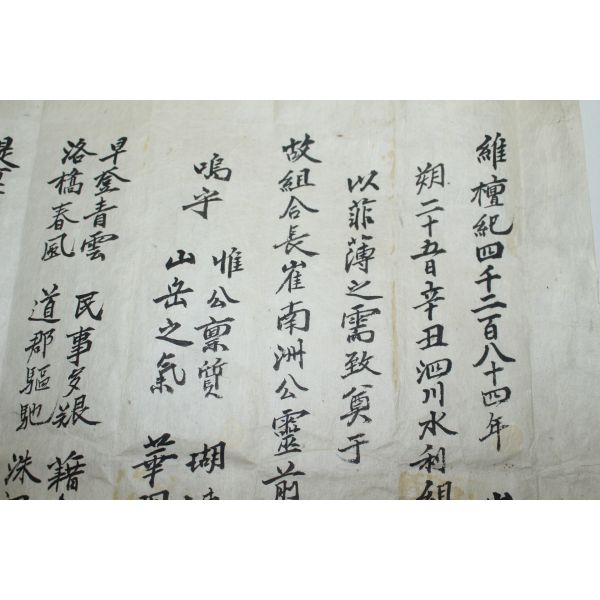 維檀紀四千二百八十四年
朔二十五日辛丑泗川水利組
以菲薄之需致奠于
故組合長崔南洲公靈前
嗚乎 惟公稟質 瑚
山岳之氣 華
早登青雲 民事多艱 籍
洛橋春風 道郡驅馳 洙